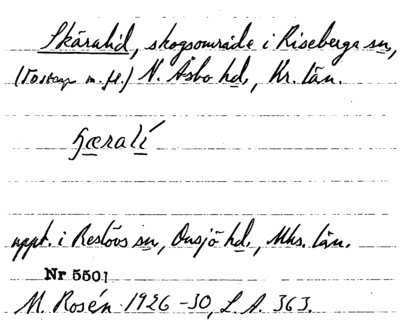 Skäralid, skogsområde i Riseberga sn,
(Tostarp m.fl.) N. Åsbo hd., Kr. län.
ʃæralí
uppt. i Restövs sn, Onsjö hd., Mhs. län.
Nr 5501
M. Rosén 1926-30, L.A. 363.